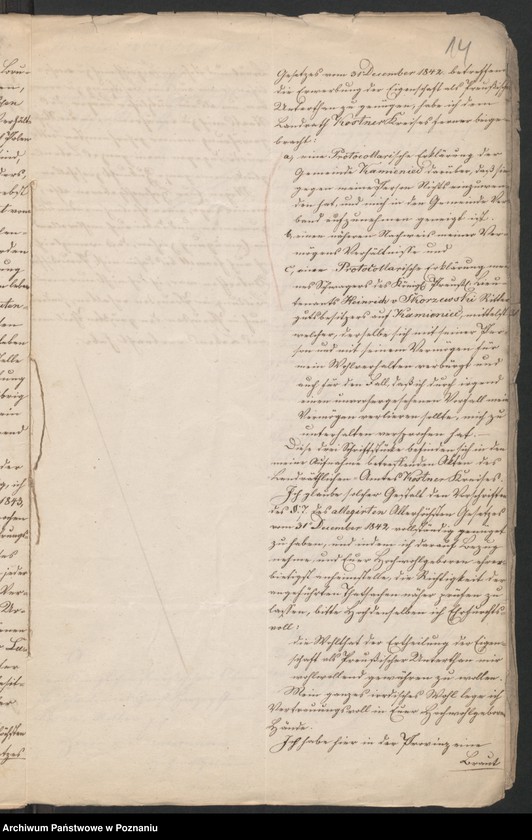 14
Gesetzes vom 31 December 1842. betreffend
die Erwerbung der Eigenschaft als Preußischer
Unterthan zu genügen, habe ich dem
Landrath Kostner Kreises ferner beige-
bracht:
a, eine Protocollarische Erklärung der
Gemeinde Kamieniec darüber, daß sie
gegen meine Person Nichts einzuwen-
den hat, und mich in den Gemeinde Ver-
band aufzunehmen geneigt ist.
b, einen näheren Nachweis meiner Ver-
mögens Verhältnisse und
c, einer Protocollarische Erklärung mei-
nes Schwagers des Königl. Preuß. Lieu-
tenants Heinrich v Skorzewski Ritter-
gutsbesitzers auf Kamieniec, mittelst
welcher, derselbe sich mit seiner Per-
son und mit seinem Vermögen für
mein Wohlverhalten verbürgt und
auch für den Fall, daß ich durch irgend
einen unvorhergesehenen Vorfall mein
Vermögen verlieren sollte, mich zu
unterhalten versprochen hat. —
Diese drei Schriftstücke befinden sich in den
meine Aufnahme betreffenden Akten des
Landräthlichen Amtes Kostner Kreises.
Ich glaube solcher Gestalt den Vorschriften
des §. 7 des allegirten Allerhöchsten Gesetzes
vom 31 December 1842 vollständig genügt
zu haben, und indem ich darauf Bezug
nehme, und Euer Hochwohlgeboren ehrer-
bietigst anheimstelle, die Richtigkeit der
angeführten Thatsachen näher prüfen zu
lassen, bitte Hochdenselben ich Ehrfurchts-
voll:
die Wohlthat der Ertheilung der Eigen-
schaft als Preußischer Unterthan mir
wohlwollend gewähren zu wollen.
Mein ganzes irdisches Wohl lege ich
Vertrauungsvoll in Euer Hochwohlgeboren
Hände.
Ich habe hier in der Provinz eine
Braut
Archiwum Państwowe w Poznaniu